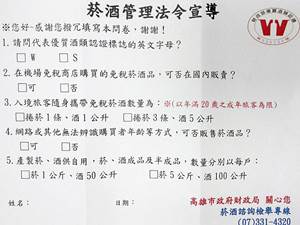 菸酒管理法令宣導
※您好-感謝您撥冗填寫本問卷，謝謝！
1.請問代表優質酒類認證標誌的英文字母？
□W □S
2.在機場免稅商店購買的免稅菸酒品，可否在國內販賣？
□可 □否
3.入境旅客隨身攜帶免稅菸酒數量為：※(以年滿20歲之成年旅客為限)
□捲菸1條、酒1公升 □捲菸3條、酒5公升
4.網路或其他無法辨識購買者年齡等方式，可否販售菸酒品？
□可 □否
5.產製菸、酒供自用，菸、酒成品及半成品，數量分別以每戶：
□菸1公斤、酒50公升 □菸5公斤、酒100公升
姓名： 日期：
高雄市政府財政局 關心您
菸酒諮詢檢舉專線
(07)331-4320